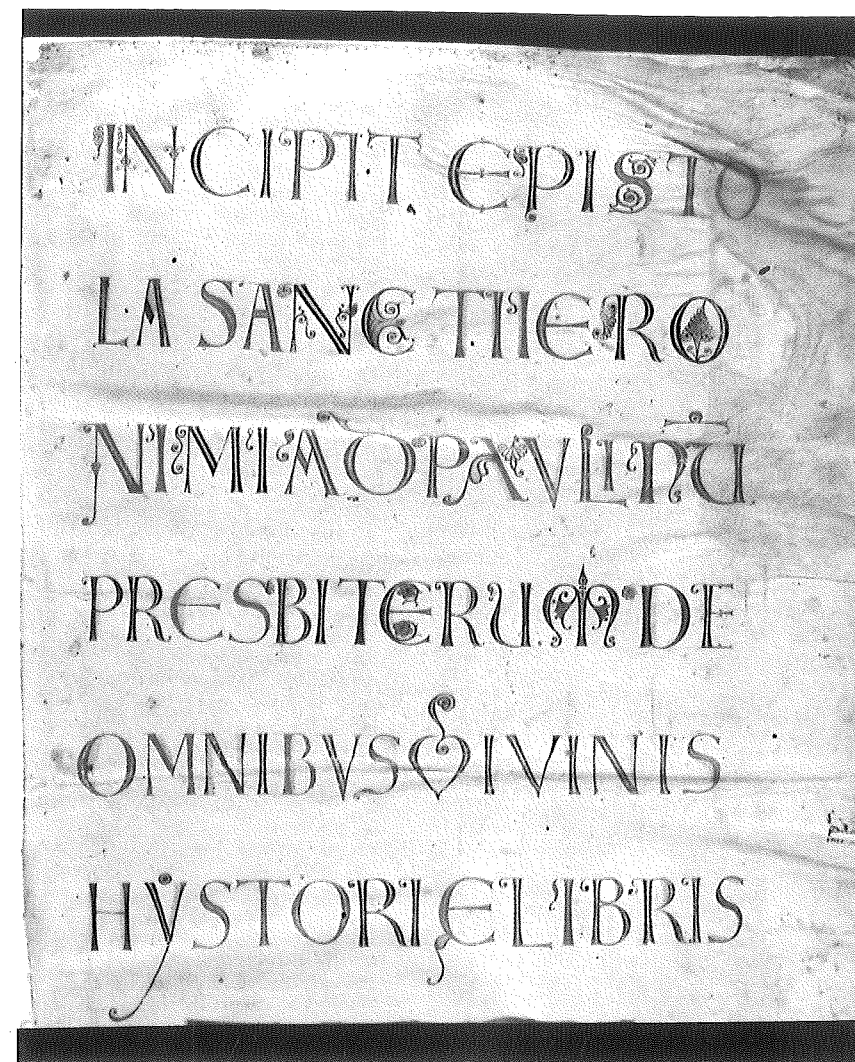 INCIPIT EPISTO
LA SANCTI IERO
NIMI AD PAULINŪ
PRESBITERUM DE
OMNIBVS DIVINIS
HYSTORIĘ LIBRIS